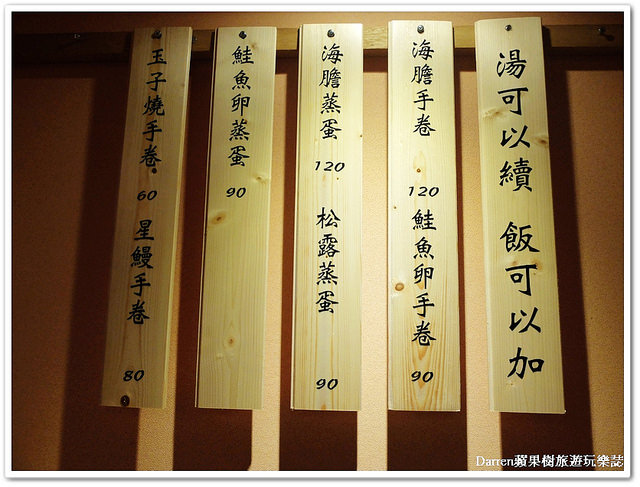 湯可以續 飯可以加
海膽手卷 120
鮭魚卵手卷 90
海膽蒸蛋 120
松露蒸蛋 90
鮭魚卵蒸蛋 90
玉子燒手卷 60
星鰻手卷 80
Darren蘋果樹旅遊玩樂誌